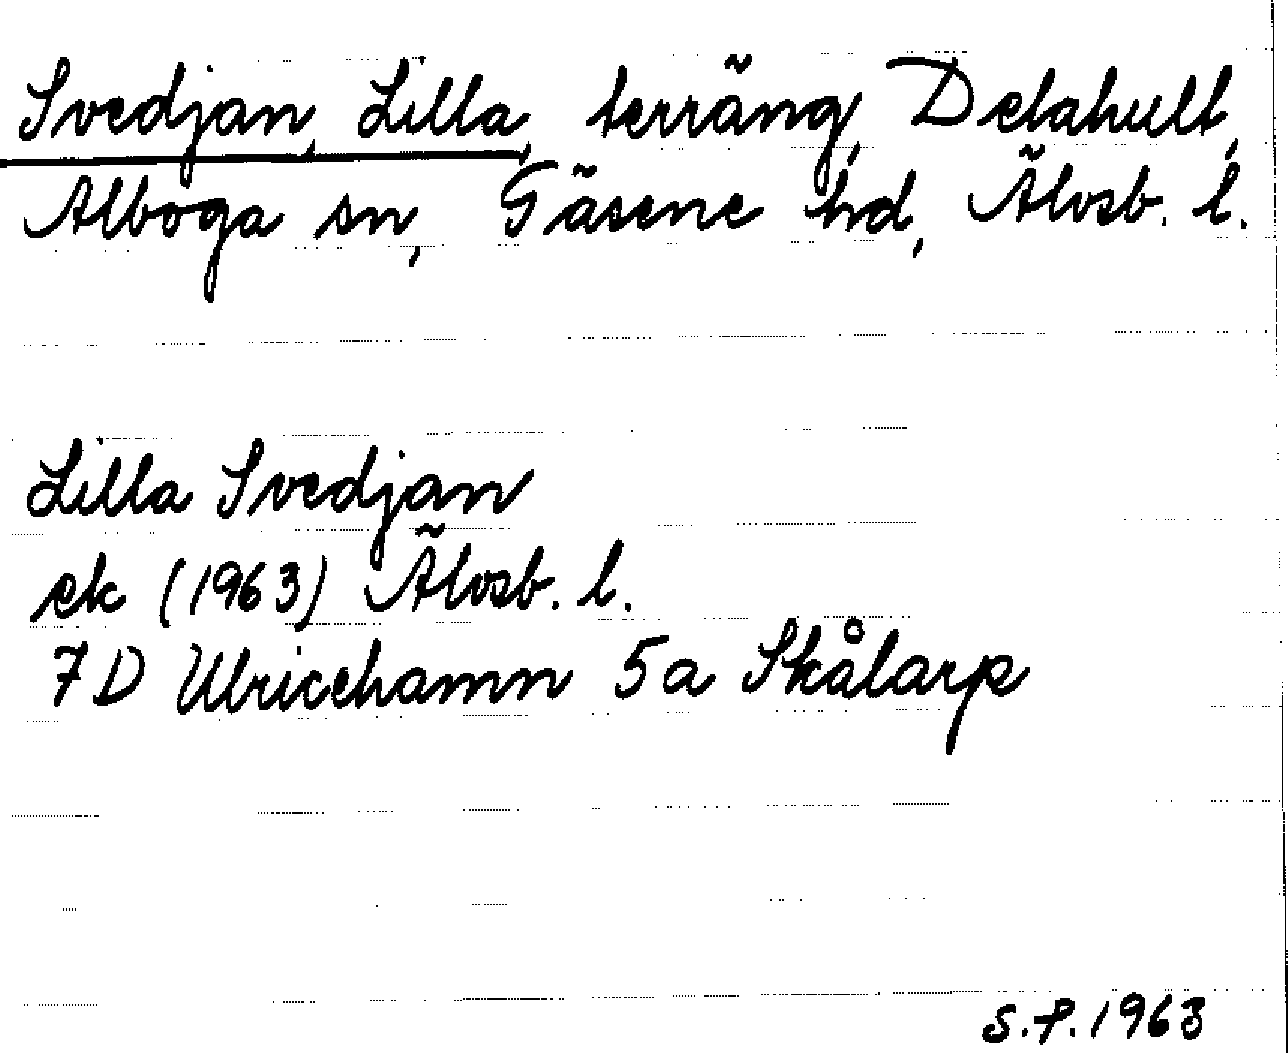 Svedjan, Lilla, terräng, Detahult,
Alboga sn, Gäsene hd, Älvsb. l.
Lilla Svedjan
ek (1963) Älvsb. l.
7D Ulricehamn 5a Skålarp
S.P. 1963